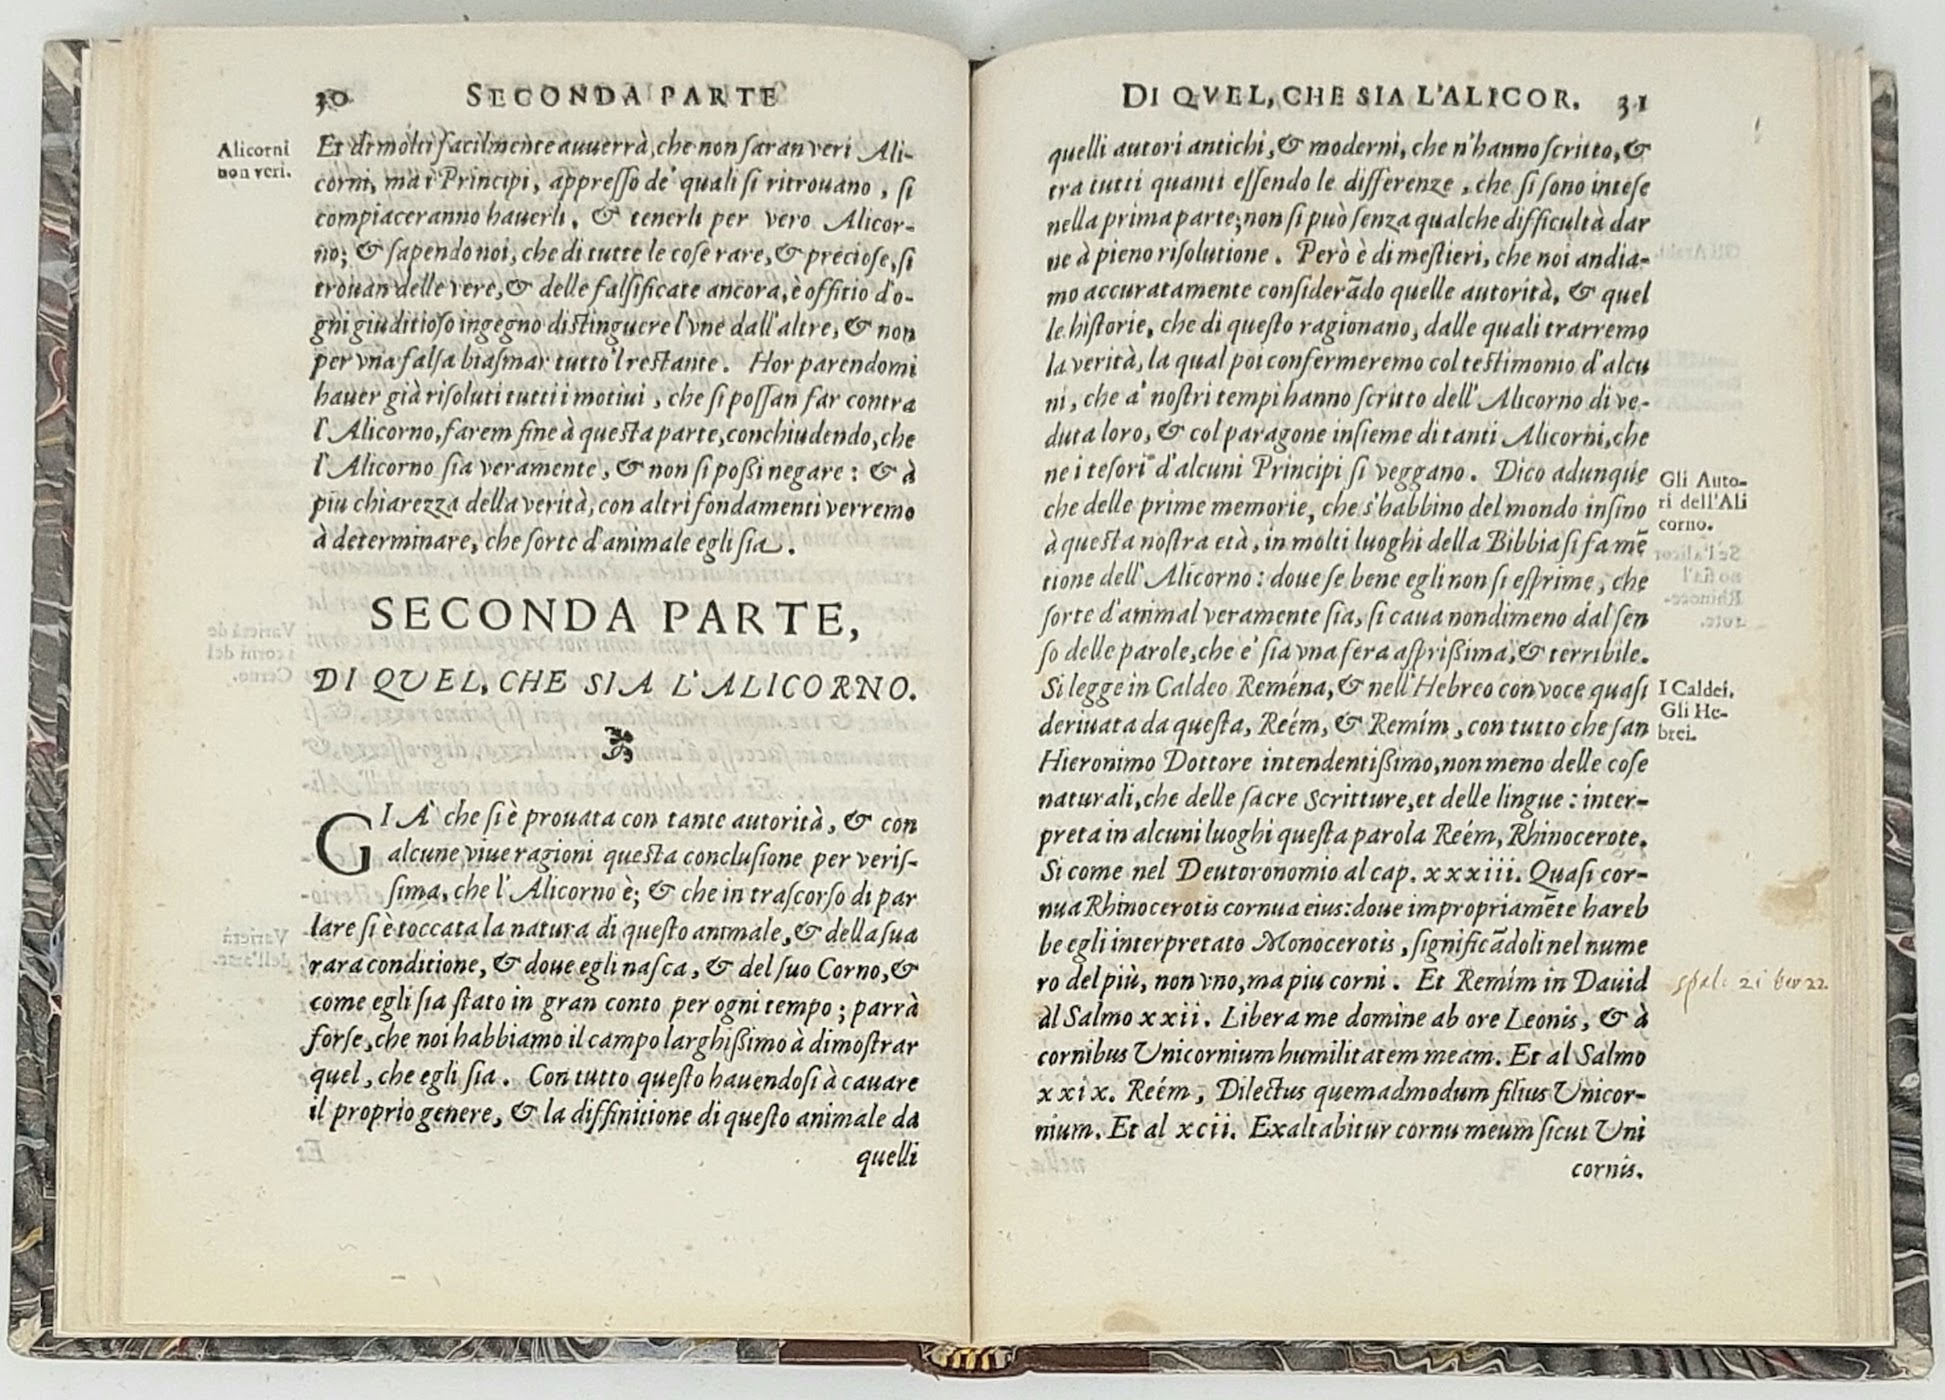 30 SECONDA PARTE
Alicorni
non veri.
Et di molti facilmente auuerrà, che non saran veri Ali-
corni, ma i Principi, appresso de' quali si ritrouano, si
compiaceranno hauerli, & tenerli per vero Alicor-
no; & sapendo noi, che di tutte le cose rare, & preciose, si
trouan delle vere, & delle falsificate ancora, è offitio d'o-
gni giuditioso ingegno distinguere l'vne dall'altre, & non
per vna falsa biasmar tutto'l restante. Hor parendomi
hauer già risoluti tutti i motiui, che si possan far contra
l'Alicorno, farem fine à questa parte, conchiudendo, che
l'Alicorno sia veramente, & non si possi negare: & à
piu chiarezza della verità, con altri fondamenti verremo
à determinare, che sorte d'animale egli sia.
SECONDA PARTE,
DI QVEL, CHE SIA L'ALICORNO.
GIA' che si è prouata con tante autorità, & con
alcune viue ragioni questa conclusione per veris-
sima, che l'Alicorno è; & che in trascorso di par
lare si è toccata la natura di questo animale, & della sua
rara conditione, & doue egli nasca, & del suo Corno, &
come egli sia stato in gran conto per ogni tempo; parrà
forse, che noi habbiamo il campo larghissimo à dimostrar
quel, che egli sia. Con tutto questo hauendosi à cauare
il proprio genere, & la diffinitione di questo animale da
quelli
DI QVEL, CHE SIA L'ALICOR. 31
quelli autori antichi, & moderni, che n'hanno scritto, &
tra tutti quanti essendo le differenze, che si sono intese
nella prima parte; non si può senza qualche difficultà dar
ne à pieno risolutione. Però è di mestieri, che noi andia-
mo accuratamente considerādo quelle autorità, & quel
le historie, che di questo ragionano, dalle quali trarremo
la verità, la qual poi confermeremo col testimonio d'alcu
ni, che a' nostri tempi hanno scritto dell'Alicorno di ve-
duta loro, & col paragone insieme di tanti Alicorni, che
ne i tesori d'alcuni Principi si veggano. Dico adunque
che delle prime memorie, che s'habbino del mondo insino
à questa nostra età, in molti luoghi della Bibbia si fa mē
tione dell'Alicorno: doue se bene egli non si esprime, che
sorte d'animal veramente sia, si caua nondimeno dal sen
so delle parole, che e' sia vna fera asprissima, & terribile.
Si legge in Caldeo Reména, & nell'Hebreo con voce quasi
deriuata da questa, Reém, & Remím, con tutto che san
Hieronimo Dottore intendentissimo, non meno delle cose
naturali, che delle sacre Scritture, et delle lingue: inter-
preta in alcuni luoghi questa parola Reém, Rhinocerote.
Si come nel Deutoronomio al cap. xxxiii. Quasi cor-
nua Rhinocerotis cornua eius: doue impropriamēte hareb
be egli interpretato Monocerotis, significādoli nel nume
ro del più, non vno, ma piu corni. Et Remím in Dauid
al Salmo xxii. Libera me domine ab ore Leonis, & à
cornibus Unicornium humilitatem meam. Et al Salmo
xxix. Reém, Dilectus quemadmodum filius Unicor-
nium. Et al xcii. Exaltabitur cornu meum sicut Uni
cornis.
Gli Auto-
ri dell'Ali
corno.
I Caldei.
Gli He-
brei.
21 22